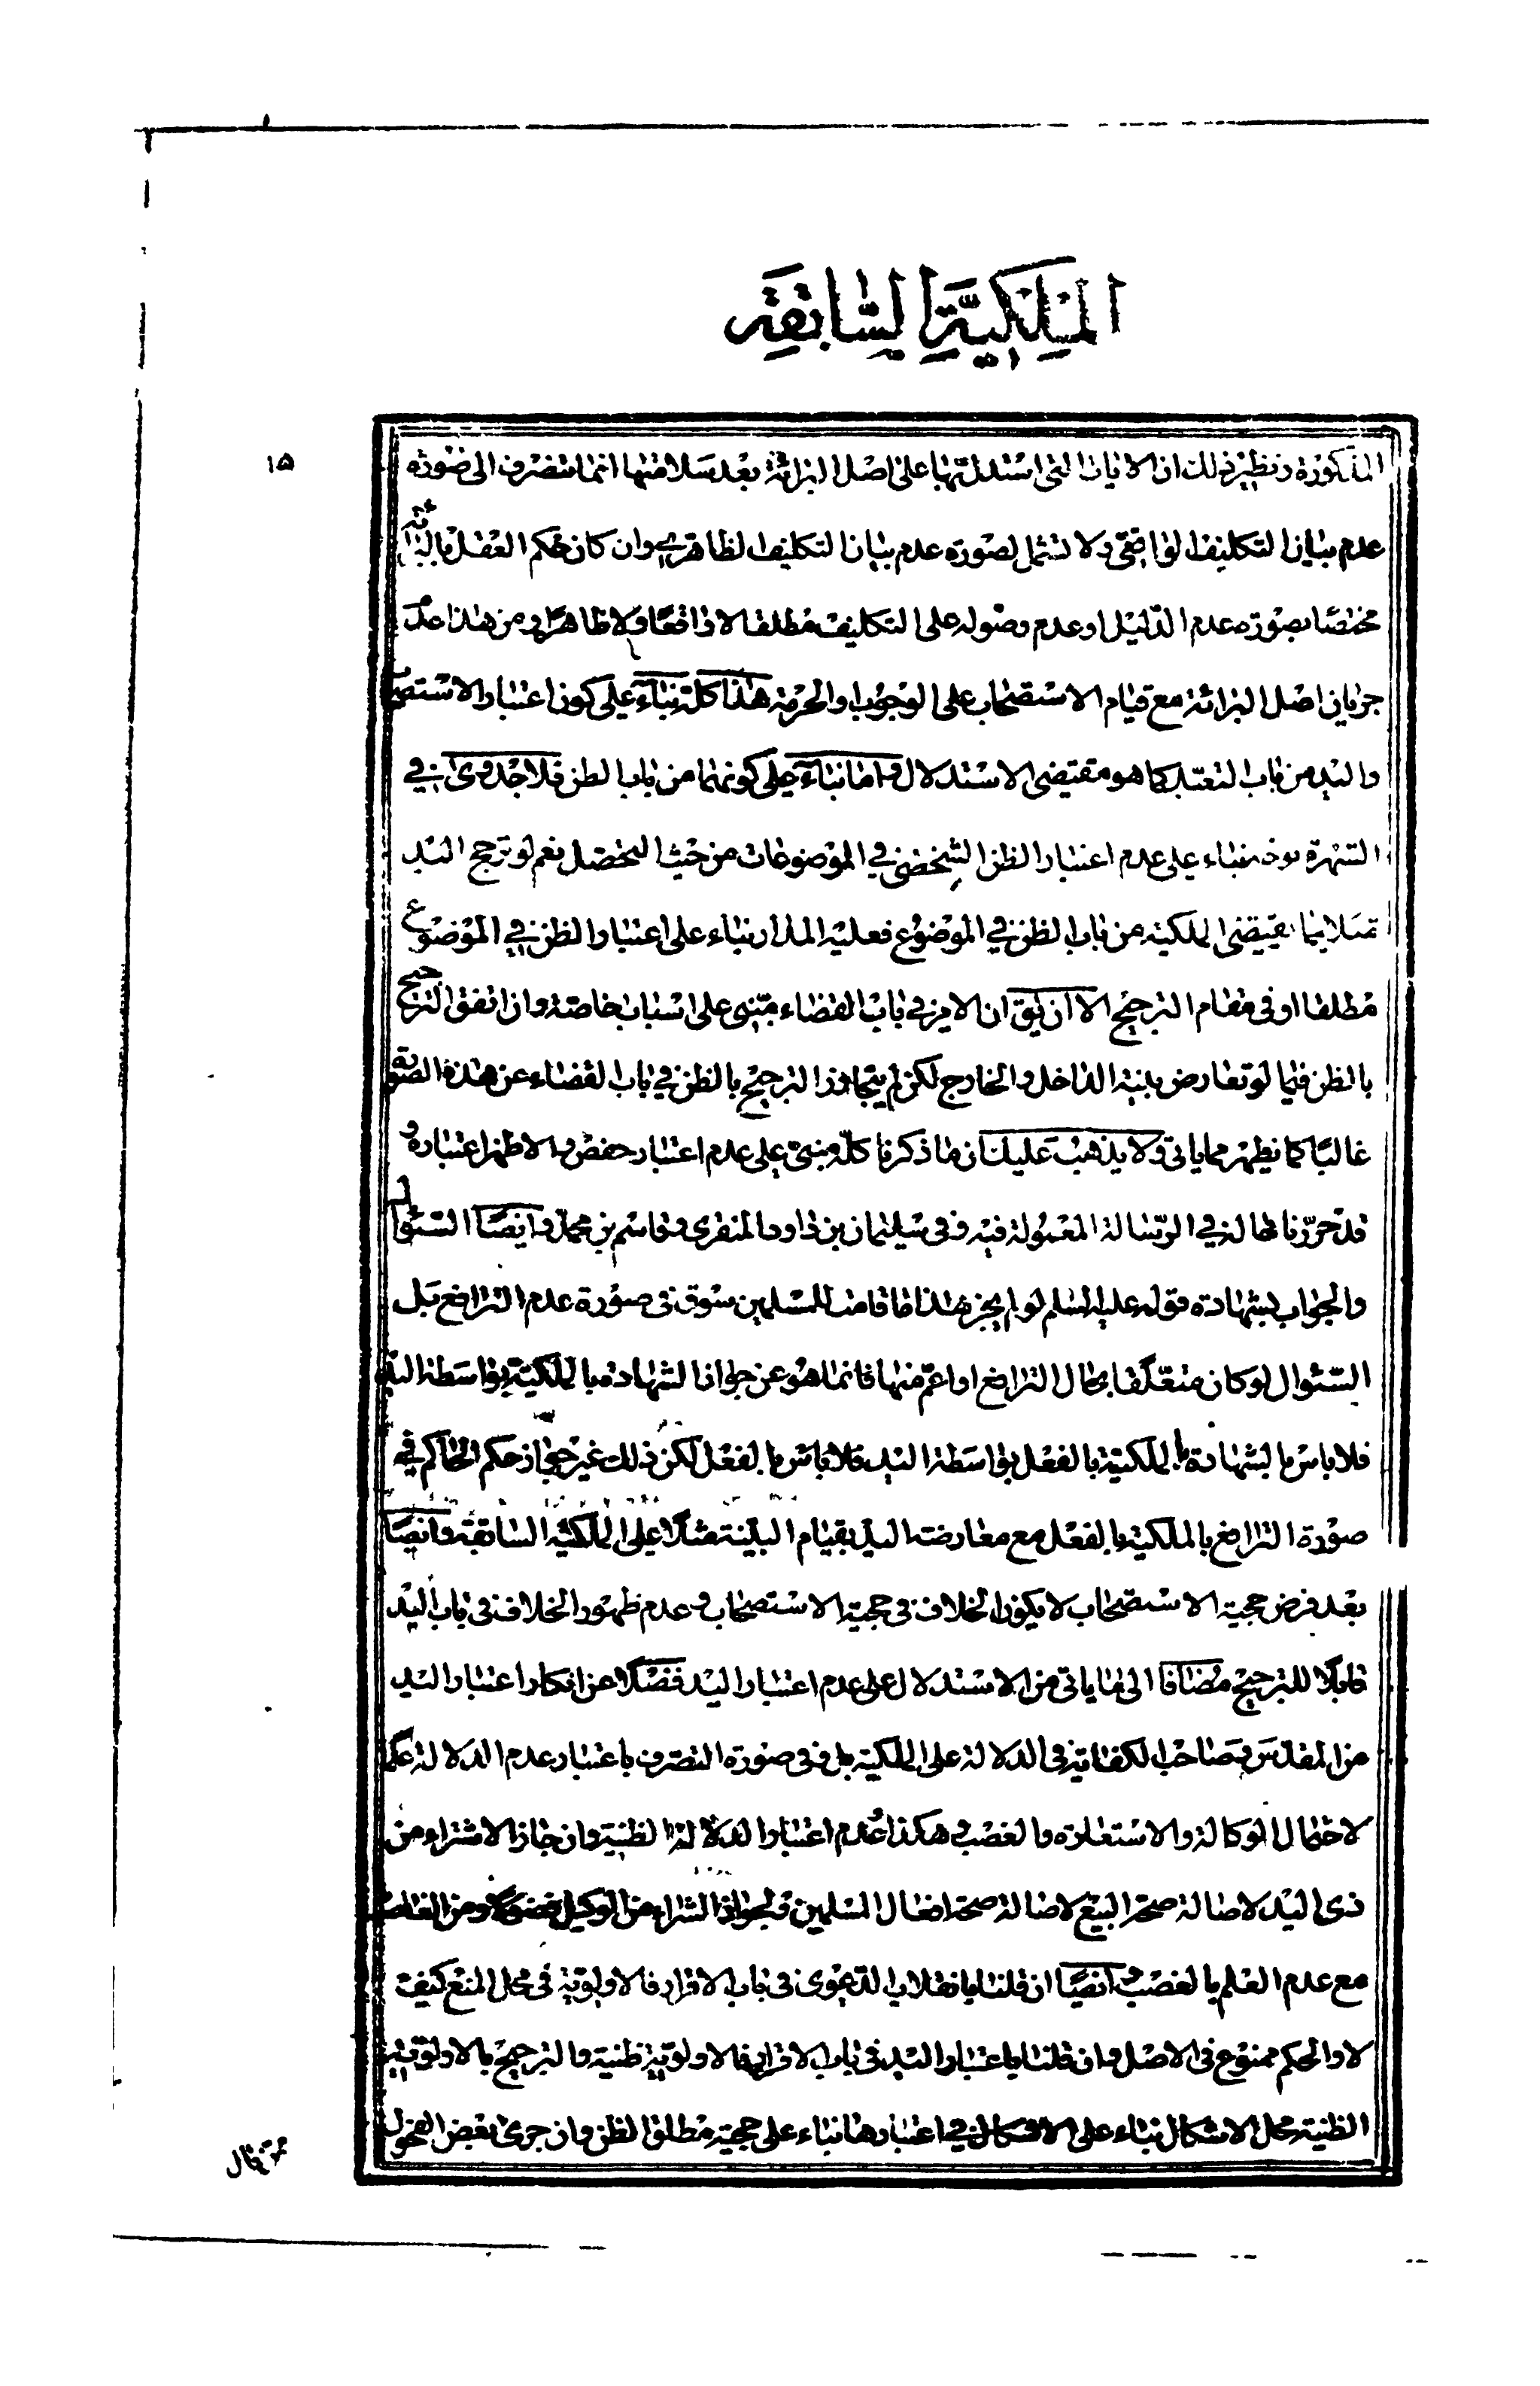 الملكية السابقة
١٥
المذكورة ونظير ذلك ان الايات التى استدل بها على اصل البرائة بعد سلامتها انما تنصرف الى صورة
عدم بيان التكليف الواقعى ولا تشمل لصورة عدم بيان التكليف الظاهرى وان كان حكم العقل بالبرائة
مختصا بصورة عدم الدليل او عدم وصوله على التكليف مطلقا لا واقعا ولا ظاهرا ومن هذا عدم
جريان اصل البرائة مع قيام الاستصحاب على الوجوب والحرمة هذا كله بناء على كون اعتبار الاستصحاب
واليد من باب التعبد كما هو مقتضى الاستدلال واما بناء على كونهما من باب الظن فلا جدوى فى
الشهرة بناء على عدم اعتبار الظن الشخصى فى الموضوعات من حيث التحصل نعم لو ترجح اليد
بما يقتضى الملكية من باب الظن فى الموضوع فعليه المدار بناء على اعتبار الظن فى الموضوع
مطلقا او فى مقام الترجيح الا ان يق ان الامر فى باب القضاء مبنى على اسباب خاصة وان اتفق الترجيح
بالظن فيما لو تعارض بينة الداخل والخارج لكن لم يتجاوز الترجيح بالظن فى باب القضاء عن هذه الصورة
غالبا كما يظهر مما ياتى ولا يذهب عليك ان ما ذكرنا كله مبنى على عدم اعتبار حفص والاظهر اعتباره و
قد حررنا الحال فى الرسالة المعمولة فيه وفى سليمان بن داود المنقرى وقاسم بن محمد وايضا السئوال
والجواب بشهادة قوله عليه السلم لو لم يجز هذا ما قامت للمسلمين سوق فى صورة عدم الترافع بل
السئوال لو كان متعلقا بحال الترافع او اعم منها فانما هو عن جواز الشهادة بالملكية بواسطة اليد
فلا باس بالشهادة بالملكية بالفعل بواسطة اليد فلا باس بالفعل لكن ذلك غير جواز حكم الحاكم فى
صورة الترافع بالملكية بالفعل مع معارضة اليد بقيام البينة مثلا على الملكية السابقة وايضا
بعد فرض حجية الاستصحاب لا يكون الخلاف فى حجية الاستصحاب وعدم ظهور الخلاف فى باب اليد
قابلا للترجيح مضافا الى ما ياتى من الاستدلال على عدم اعتبار اليد فضلا عن انكار اعتبار اليد
من المقدس وصاحب الكفاية فى الدلالة على الملكية بل فى صورة التصرف باعتبار عدم الدلالة علما
لاحتمال الوكالة والاستعارة والغصب وهكذا عدم اعتبار الدلالة الظنية وان جاز الاشتراء من
ذى اليد لاصالة صحة البيع لاصالة صحة افعال المسلمين ولجواز الشراء من الوكيل ومن الغاصب
مع عدم العلم بالغصب وايضا ان قلنا بانقلاب الدعوى فى باب الاقرار فالاولوية فى محل المنع كيف
لا والحكم ممنوع فى الاصل وان قلنا باعتبار اليد فى باب الاقرار فالاولوية ظنية والترجيح بالاولوية
الظنية محل الاشكال بناء على الاشكال فى اعتبارها بناء على حجية مطلق الظن وان جرى بعض الفحول